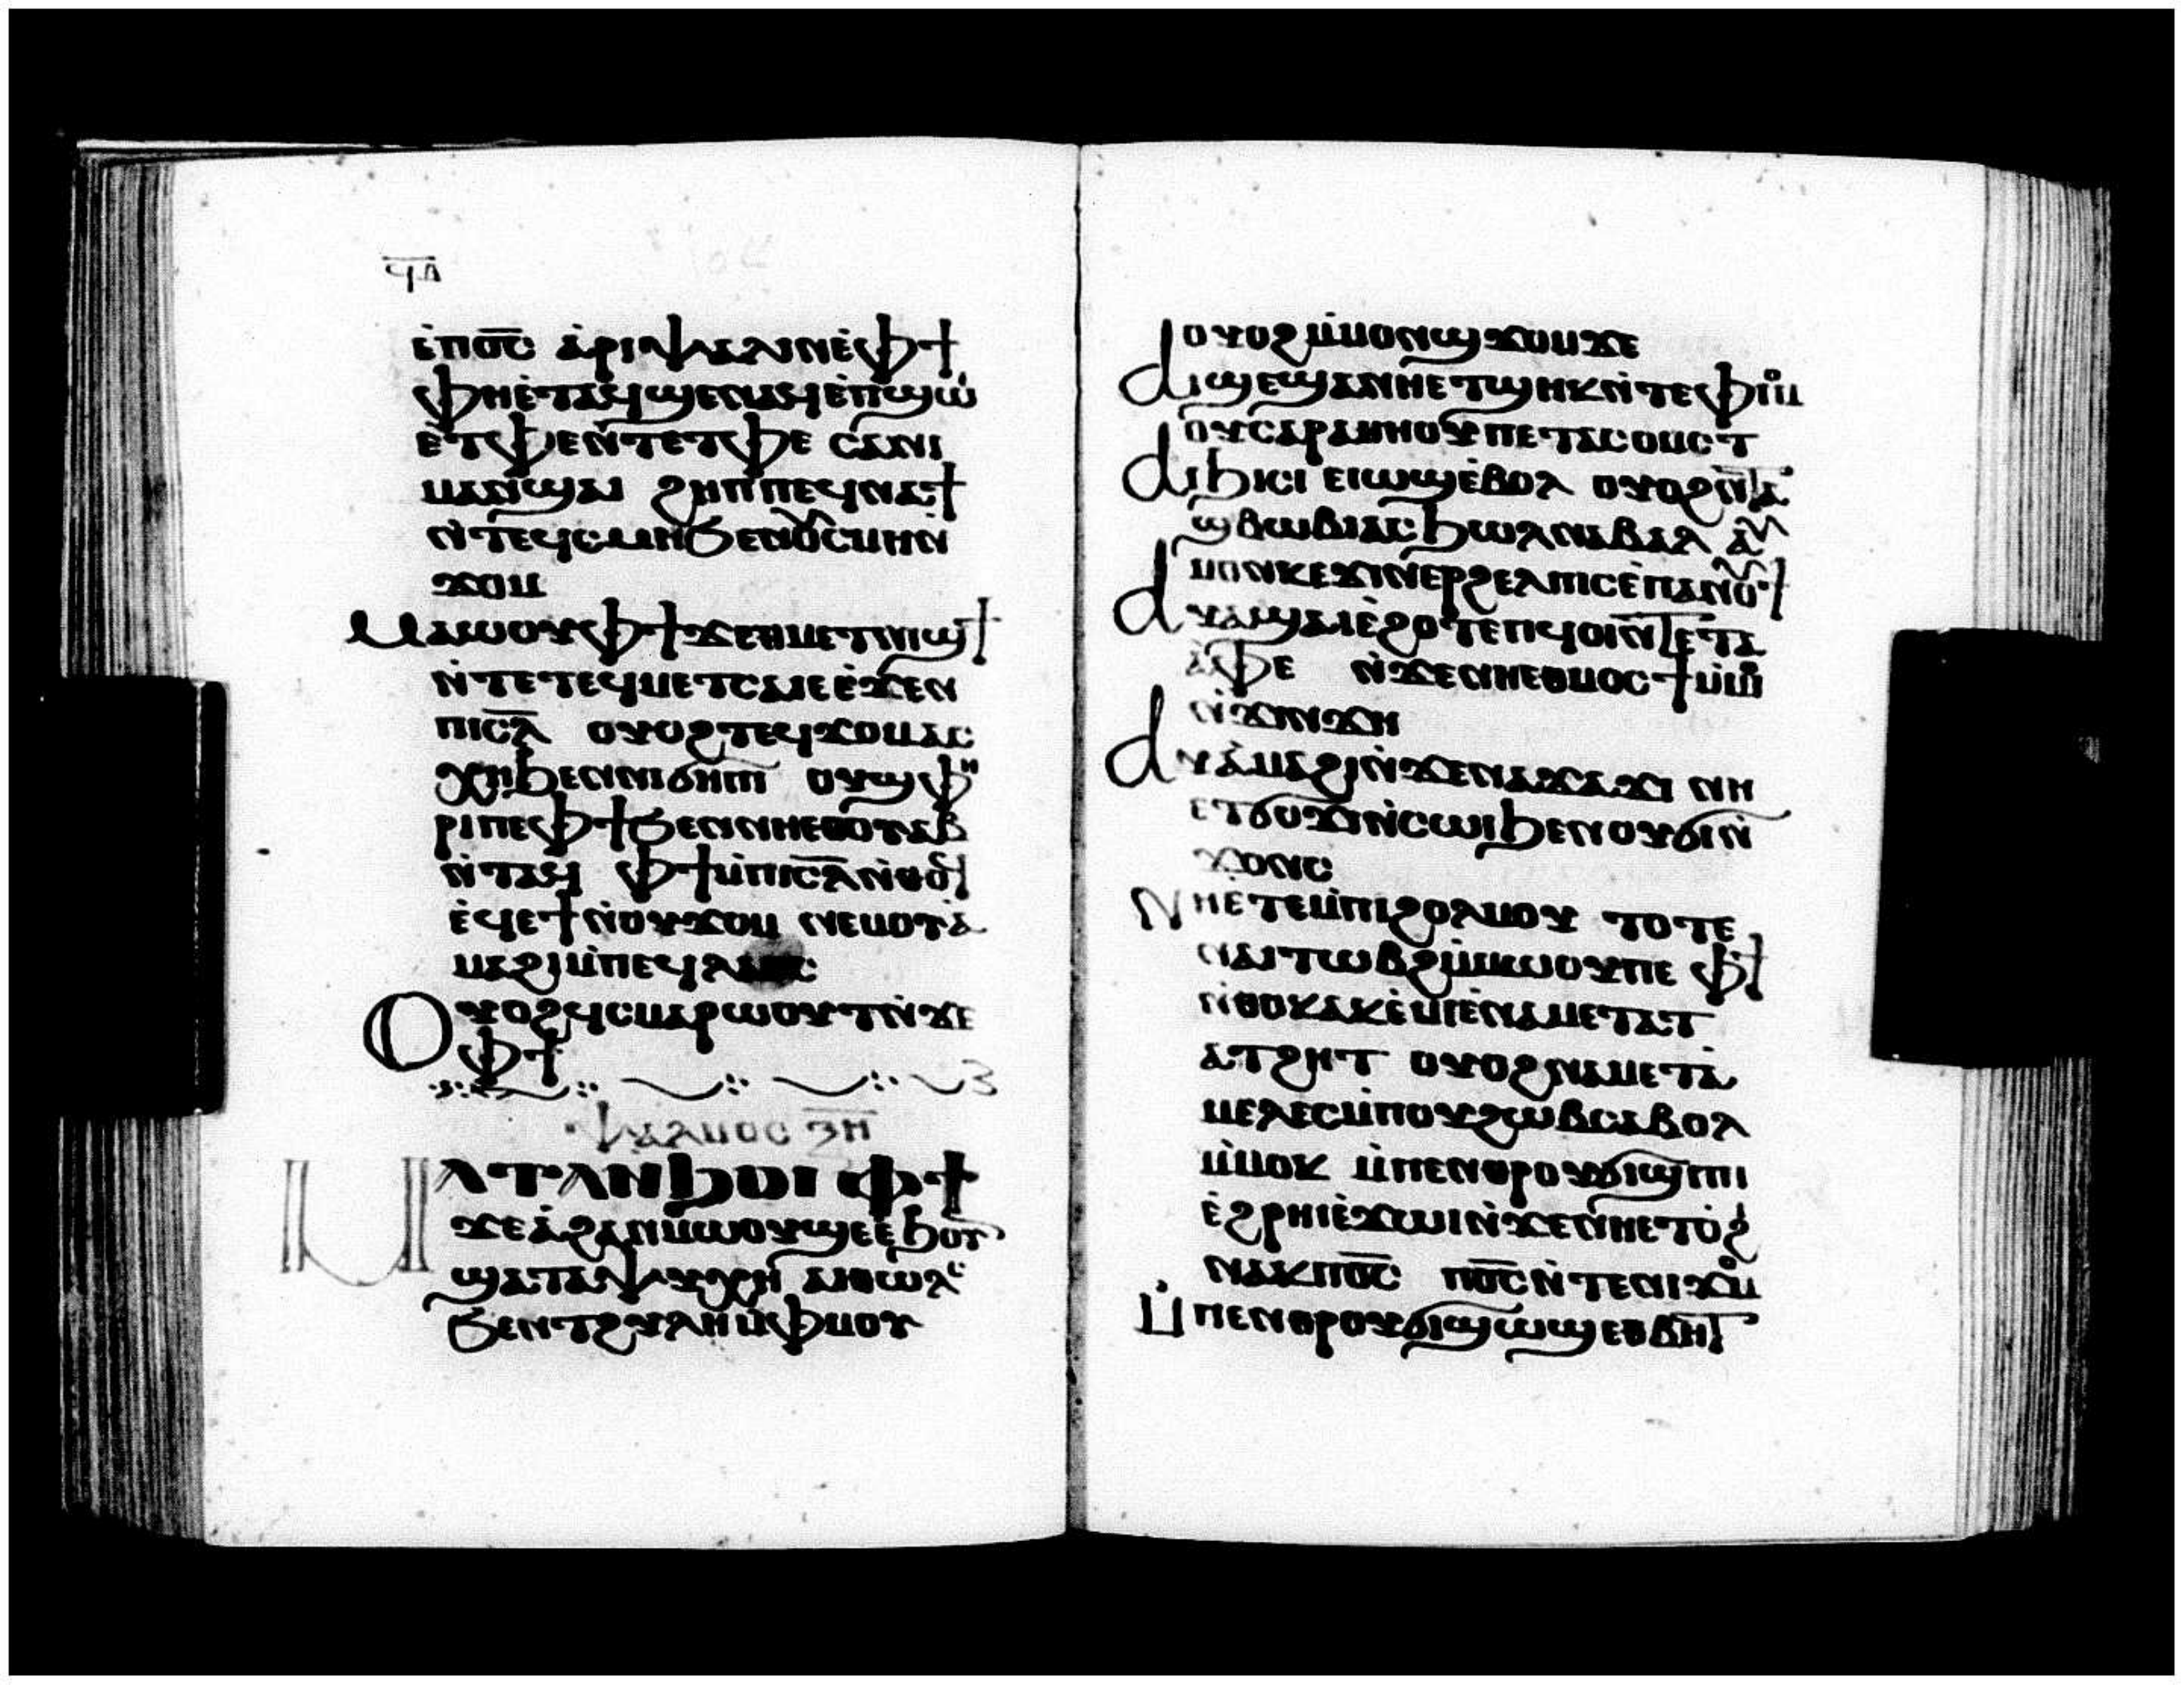 ϥⲁ
ⲉ̀ⲡⲟ̅ⲥ̅ ⲁ̀ⲣⲓⲯⲁⲗⲓⲛⲉ̀ⲫϯ
ⲫⲏⲉ̀ⲧⲁϥϣⲉⲛⲁϥⲉ̀ⲡϣⲱⲓ
ⲉ̀ⲧⲫⲉⲛ̀ⲧⲉⲧⲫⲉ ⲥⲁⲛⲓ
ⲙⲁⲛ̀ϣⲁⲓ ϩⲏⲡⲡⲉϥⲛⲁϯ
ⲛ̀ⲧⲉϥⲥⲙⲏϧⲉⲛⲟⲩⲥⲙⲏⲛ̀
ϫⲟⲙ
ⲙⲁⲱⲟⲩⲙ̀ⲫϯϫⲉⲧⲉϥⲙⲉⲧⲛⲓϣϯ
ⲛ̀ⲧⲉⲧⲉϥⲙⲉⲧⲥⲁⲓⲉⲉ̀ϫⲉⲛ
ⲡⲓⲥ̅ⲗ̅ ⲟⲩⲟϩⲧⲉϥϫⲟⲙⲁⲥ
ⲭⲏϧⲉⲛⲛⲓϭⲏⲡⲓ ⲟⲩϣⲫⲏ
ⲣⲓⲡⲉⲫϯϧⲉⲛⲛⲏⲉⲑⲟⲩⲁⲃ
ⲛ̀ⲧⲁϥ ⲫϯⲙ̀ⲡⲓⲥ̅ⲗ̅ⲛ̀ⲑⲟϥ
ⲉ̀ϥⲉϯⲛ̀ⲟⲩϫⲟⲙ ⲛⲉⲙⲟⲩⲁ̀
ⲙⲁϩⲓⲙ̀ⲡⲉϥⲗⲁⲟⲥ
Ⲟⲩⲟϩϥⲥⲙⲁⲣⲱⲟⲩⲧⲛ̀ϫⲉ
ⲫϯ
ⲯⲁⲗⲙⲟⲥ ⲝ̅ⲏ̅
Ⲙⲁⲧⲁⲛϧⲟⲓ ⲫϯ
ϫⲉⲁ̀ϩⲁⲛⲙⲱⲟⲩϣⲉⲉ̀ϧⲟⲩⲛ
ϣⲁⲧⲁⲯⲩⲭⲏ ⲁⲓⲑⲱⲗⲥ
ϧⲉⲛⲧϩⲩⲗⲏⲙ̀ⲫⲙⲟⲩ
ⲟⲩⲟϩⲙ̀ⲙⲟⲛϣϫⲟⲙϫⲉ
Ⲁⲓϣⲉϣⲁⲛⲏⲉⲧϣⲏⲕⲛ̀ⲧⲉⲫⲓⲟⲙ
ⲟⲩⲥⲁⲣⲁⲑⲏⲟⲩⲡⲉⲧⲁⲥⲟⲙⲥⲧ
Ⲁⲓϧⲓⲥⲓ ⲉⲓⲱϣⲉ̀ⲃⲟⲗ ⲟⲩⲟϩⲛ̀ⲧⲁ
ϣⲃⲱⲃⲓⲁⲥϧⲱⲗⲛⲁⲃⲁⲗ ⲁⲩ
ⲙⲟⲩⲛⲕⲉϫⲓⲛⲉⲣϩⲉⲗⲡⲓⲥⲉ̀ⲡⲁⲛⲟⲩϯ
Ⲁⲩⲁ̀ϣⲁⲓⲉ̀ϩⲟⲧⲉⲡϥⲱⲓⲛ̀ⲧⲉⲧⲁ
ⲁ̀ⲫⲉ ⲛ̀ϫⲉⲛⲏⲉⲑⲙⲟⲥϯⲙ̀ⲙⲟⲓ
ⲛ̀ϫⲓⲛϫⲏ
Ⲁⲩⲁ̀ⲙⲁϩⲓⲛ̀ϫⲉⲛⲁϫⲁϫⲓ ⲛⲏ
ⲉⲧϭⲟϫⲓⲛ̀ⲥⲱⲓϧⲉⲛⲟⲩϭⲓⲛ̀
ϫⲟⲛⲥ
Ⲛⲏⲉ̀ⲧⲉⲙ̀ⲡⲓϩⲟⲗⲙⲟⲩ ⲧⲟⲧⲉ
ⲛⲁⲓⲧⲱⲃϩⲙ̀ⲙⲱⲟⲩⲡⲉ ⲫϯ
ⲛ̀ⲑⲟⲕⲁⲕⲉ̀ⲙⲓⲉ̀ⲛⲁⲙⲉⲧⲁⲧ
ⲁⲧϩⲏⲧ ⲟⲩⲟϩⲛⲁⲙⲉⲧⲁ̀
ⲙⲉⲗⲉⲥⲙ̀ⲡⲟⲩϩⲱⲃⲥⲁⲃⲟⲗ
ⲙ̀ⲙⲟⲕ ⲙ̀ⲡⲉⲛⲑⲣⲟⲩϭⲓϣⲓⲡⲓ
ⲉ̀ϩⲣⲏⲓⲉ̀ϫⲱⲓⲛ̀ϫⲉⲛⲏⲉⲧⲟ̀ϩⲓ
ⲛⲁⲕⲡⲟ̅ⲥ̅ ⲡⲟ̅ⲥ̅ⲛ̀ⲧⲉⲛⲓϫⲟⲙ
Ⲙ̀ⲡⲉⲛⲑⲣⲟⲩϭⲓϣⲱϣⲉⲑⲃⲏⲧ